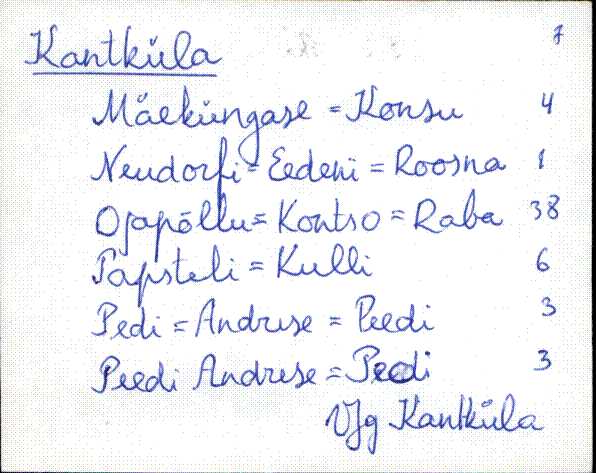 Kantküla 7
Mäeküngase = Konsu 4
Neudorfi = Eedeni = Roosna 1
Ojapõllu = Kontso = Raba 38
Papsteli = Kulli 6
Pedi = Andruse = Peedi 3
Peedi Andruse = Peedi 3
VJg Kantküla